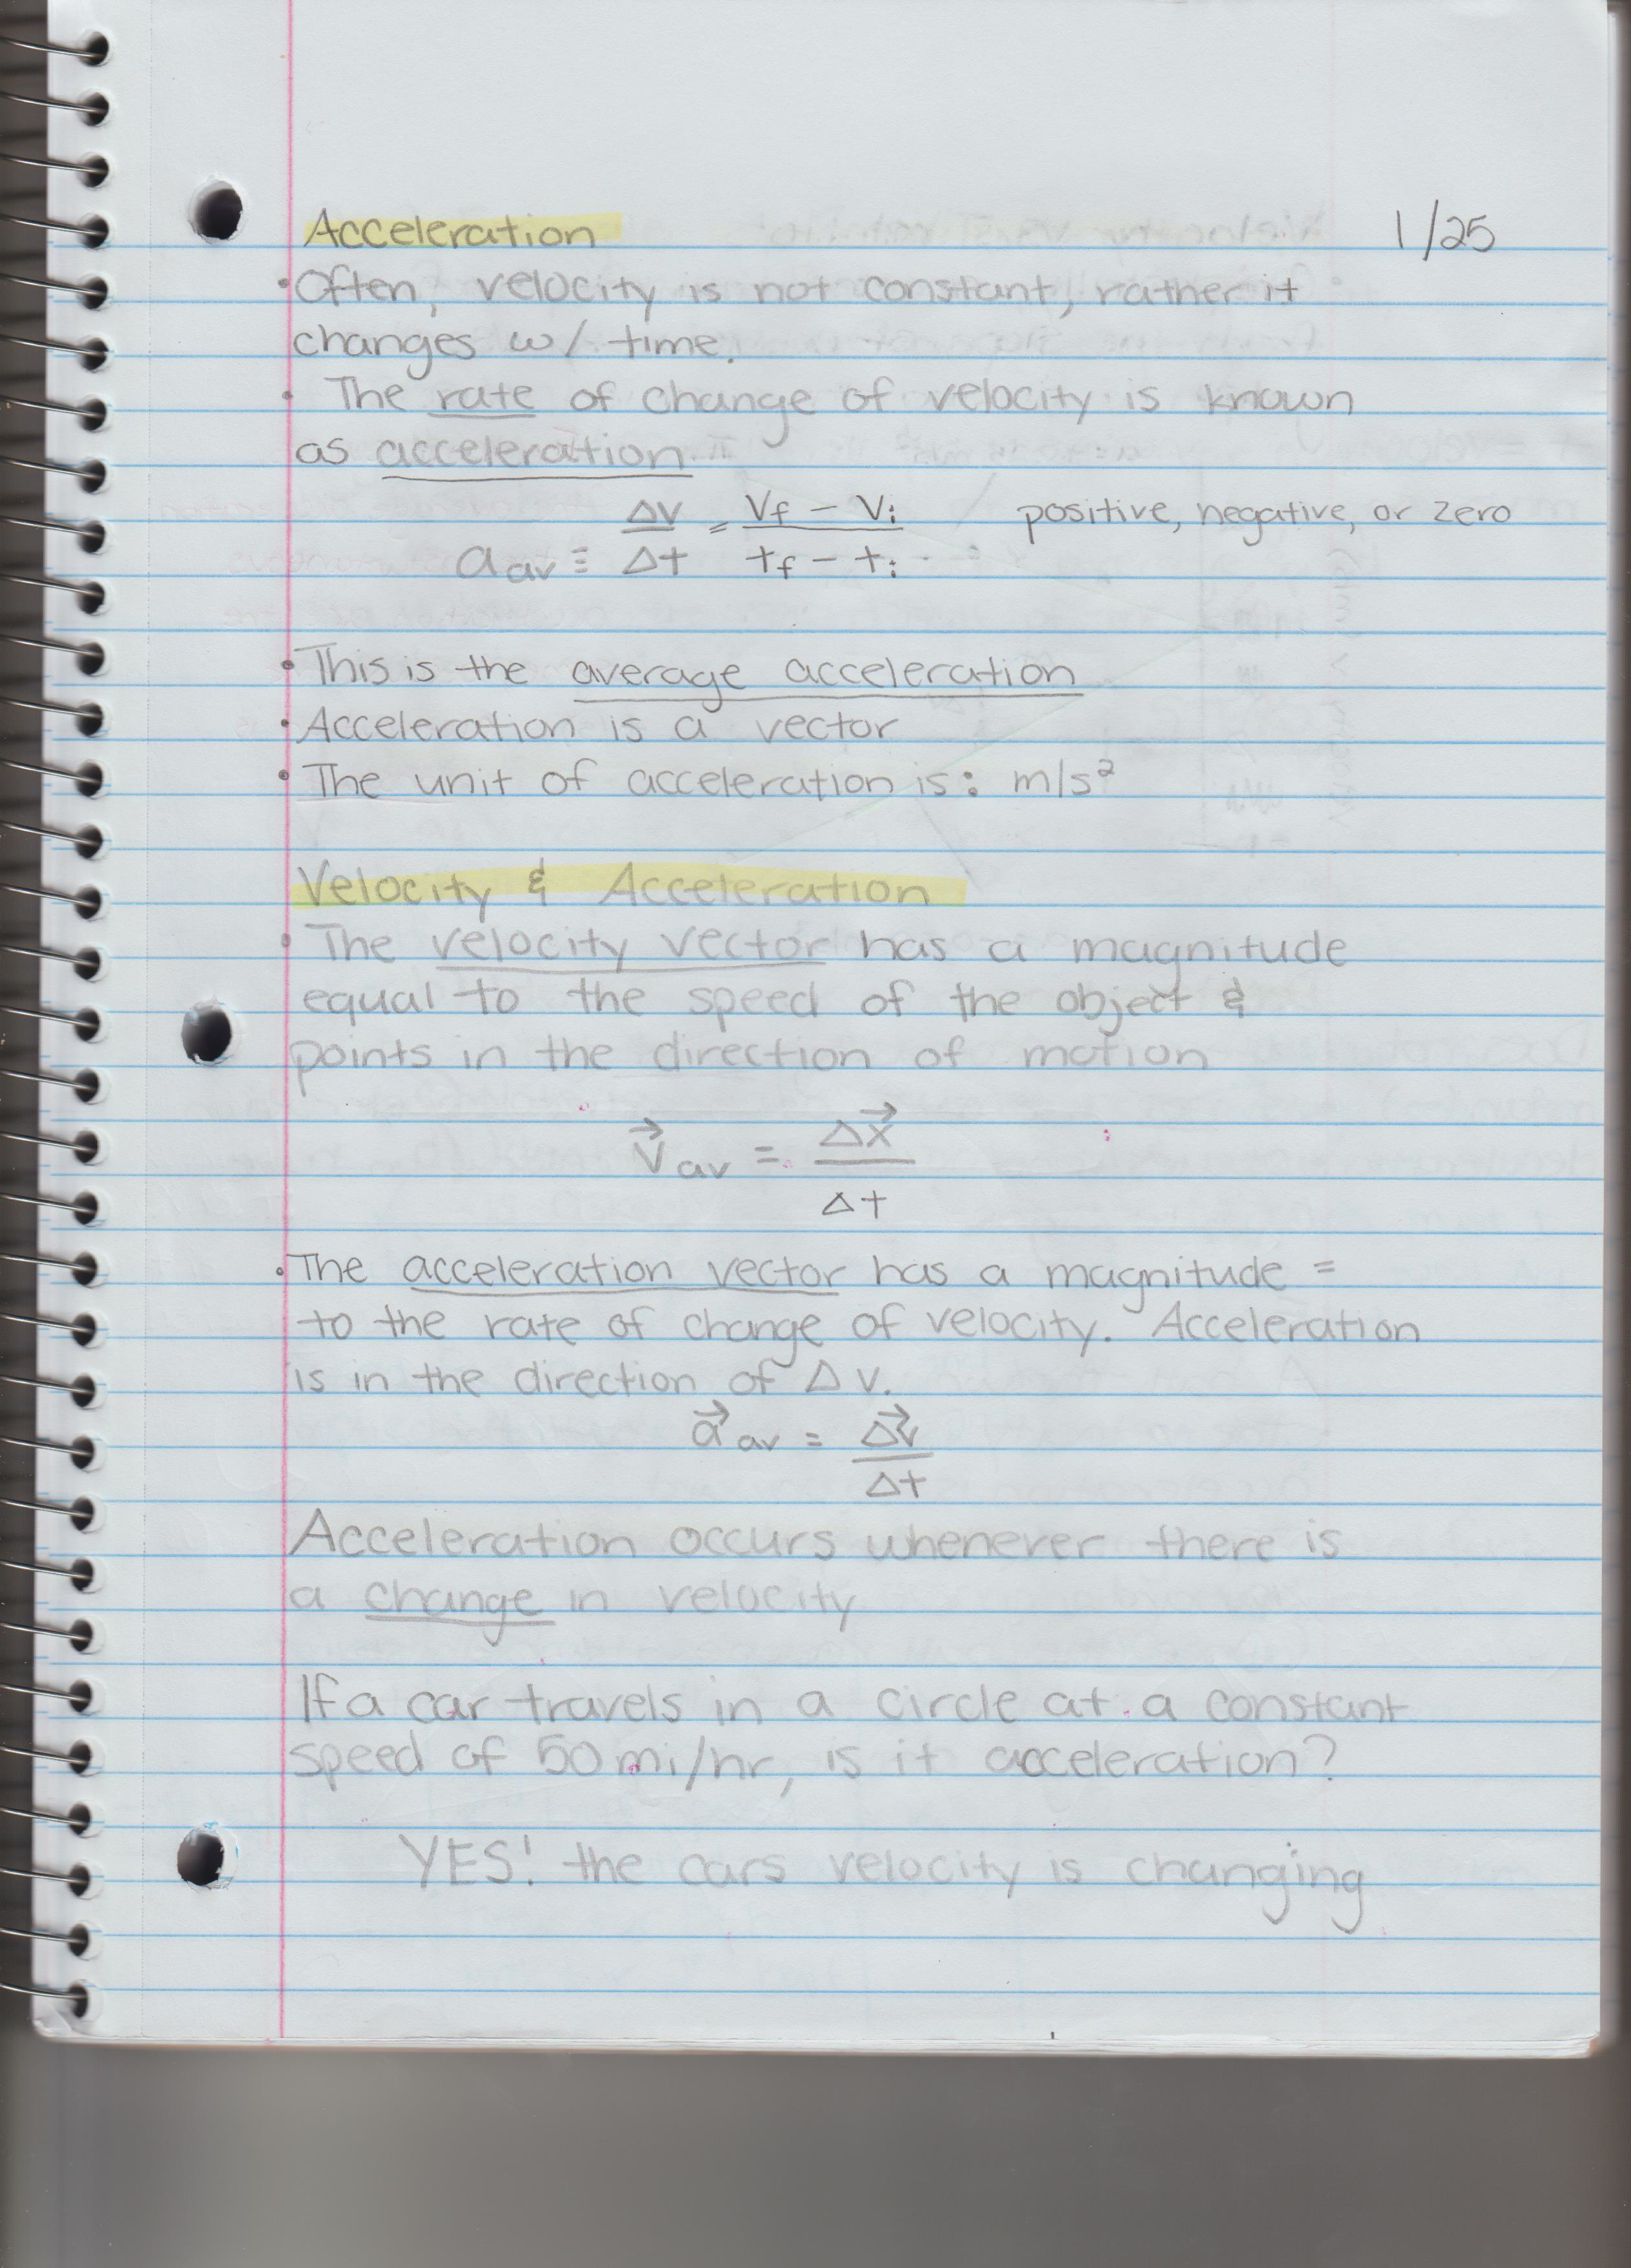 Acceleration 1/25
• Often, velocity is not constant, rather it
changes w/ time.
• The rate of change of velocity is known
as acceleration
a av ≡ Δv/Δt = Vf - Vi / tf - ti positive, negative, or zero
• This is the average acceleration
• Acceleration is a vector
• The unit of acceleration is: m/s²
Velocity & Acceleration
• The velocity vector has a magnitude
equal to the speed of the object &
points in the direction of motion
v⃗ av = Δx⃗ / Δt
• The acceleration vector has a magnitude =
to the rate of change of velocity. Acceleration
is in the direction of Δ v.
a⃗ av = Δv⃗ / Δt
Acceleration occurs whenever there is
a change in velocity
If a car travels in a circle at a constant
speed of 50 mi/hr, is it acceleration?
YES! the cars velocity is changing